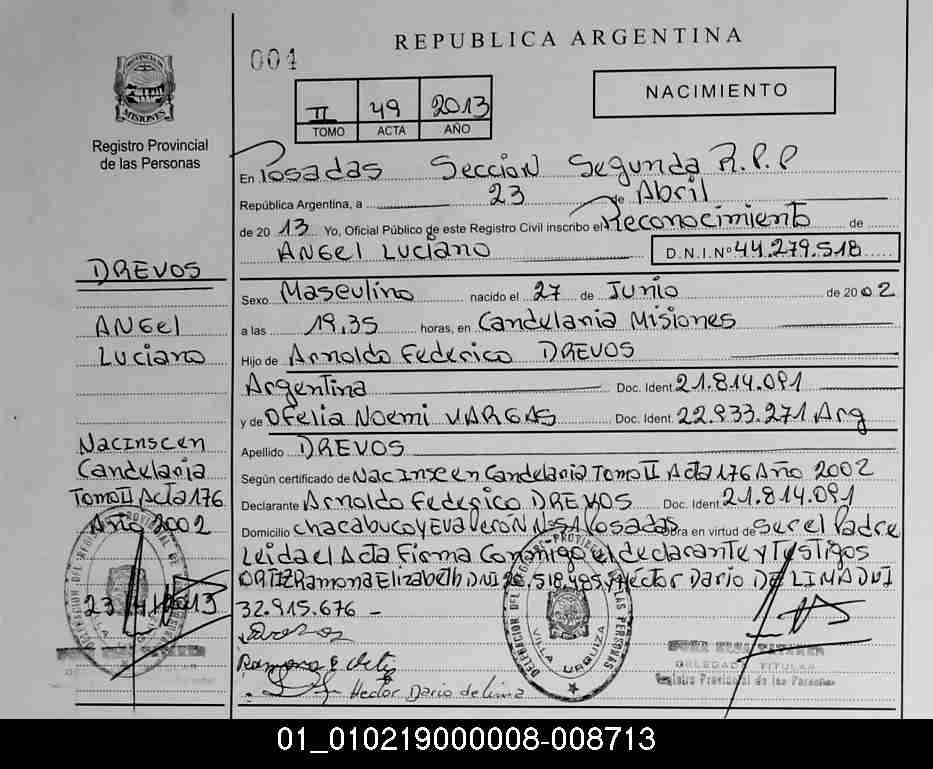 004
REPUBLICA ARGENTINA
PROVINCIA DE
MISIONES
Registro Provincial
de las Personas
II 49 2013
TOMO ACTA AÑO
NACIMIENTO
En Posadas Seccion Segunda R.P.P
República Argentina, a 23 de Abril
de 2013 Yo, Oficial Público de este Registro Civil inscribo el Reconocimiento de
ANGel Luciano D.N.I.Nº 44.279.518
Sexo Masculino nacido el 27 de Junio de 2002
a las 19,35 horas, en Candelaria Misiones
Hijo de Arnoldo Federico DREVOS
Argentina Doc. Ident. 21.814.091
y de OFelia Noemi VARGAS Doc. Ident. 22.933.271 Arg
Apellido DREVOS
Según certificado de Nac Insc en Candelaria Tomo II Acta 176 Año 2002
Declarante Arnoldo Federico DREVOS Doc. Ident 21.814.091
Domicilio chacabuco y Eva Peron Nº S/ Posadas Obra en virtud de Ser el Padre
Leida el Acta Firma Conmigo el declarante y Testigos
ORTIZ Ramona Elizabeth DNI 518.485 y Héctor Dario DE LIMA DNI
32.915.676 -
Drevos
Ramona E. Ortiz
Hector Dario de Lima
DREVOS
ANGel
Luciano
Nac Insc en
Candelaria
Tomo II Acta 176
Año 2002
23/4/2013
DELEGACION DEL REGISTRO PROVINCIAL DE LAS PERSONAS
VILLA URQUIZA
DELEGADO TITULAR
Registro Provincial de las Personas
01_010219000008-008713